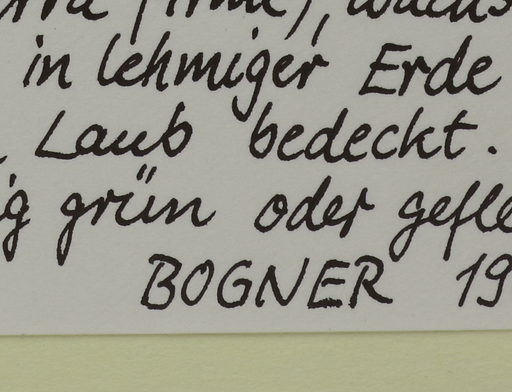 in lehmiger Erde
Laub bedeckt.
grün oder
BOGNER 19